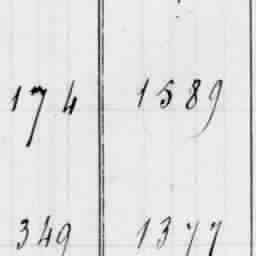 174 1589
349 1377